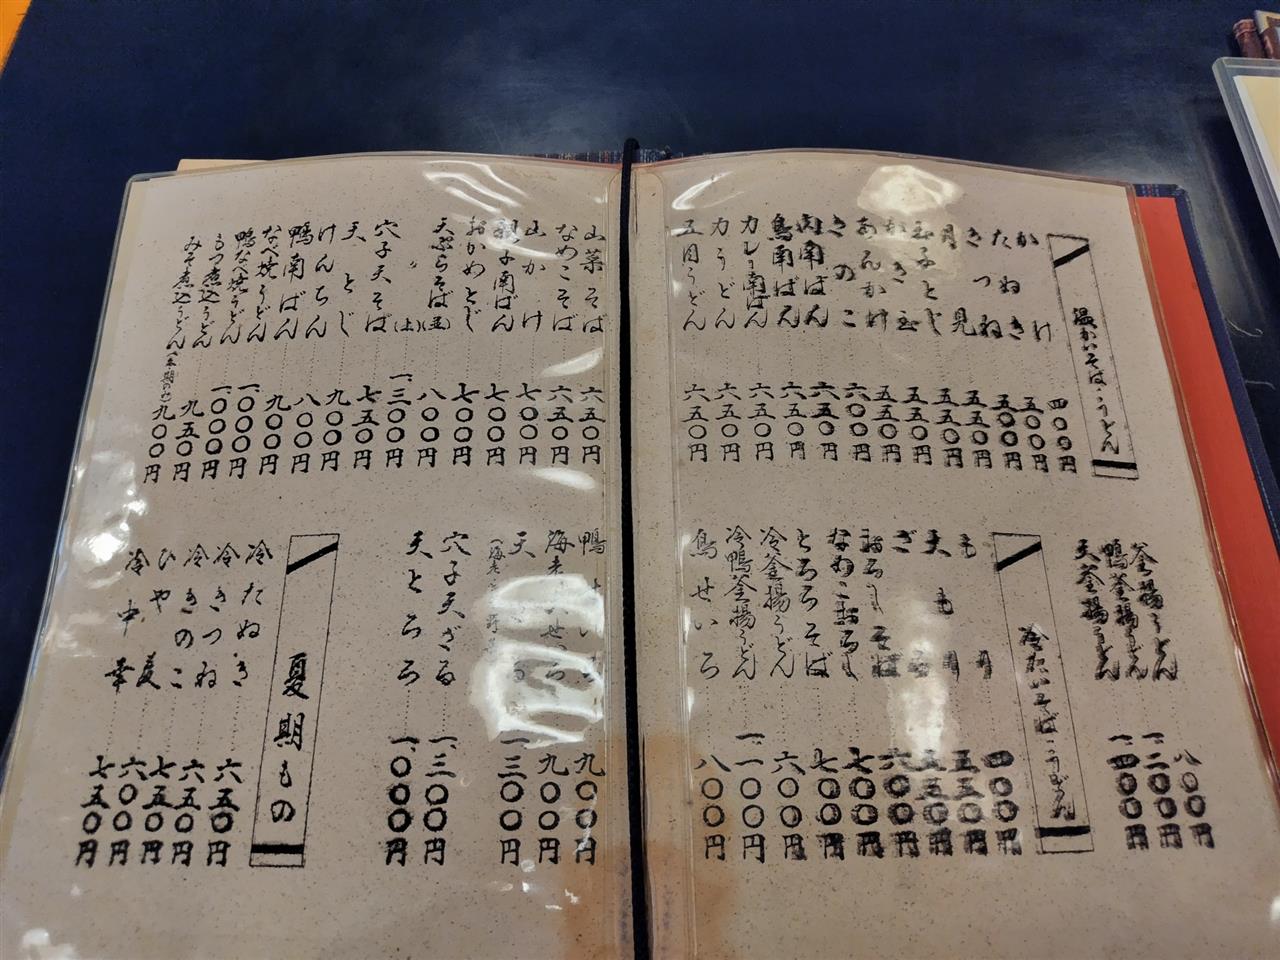 温かいそば・うどん
かけ 四〇〇円
たぬき 五〇〇円
きつね 五〇〇円
月見 五五〇円
玉子とじ 五五〇円
かき玉 五五〇円
あんかけ 五五〇円
きのこ 六〇〇円
肉南ばん 六五〇円
鳥南ばん 六五〇円
カレー南ばん 六五〇円
力うどん 六五〇円
五目うどん 六五〇円
山菜そば 六五〇円
なめこそば 六五〇円
山かけ 七〇〇円
親子南ばん 七〇〇円
おかめとじ 七〇〇円
天ぷらそば(並) 八〇〇円
〃 (上) 一、三〇〇円
穴子天そば 七五〇円
天とじ 九〇〇円
けんちん 八〇〇円
鴨南ばん 九〇〇円
なべ焼うどん 一、〇〇〇円
鴨なべ焼うどん 一、〇〇〇円
もつ煮込うどん 九五〇円
みそ煮込うどん(冬期のみ) 九〇〇円
釜揚うどん 八〇〇円
鴨釜揚うどん 一、二〇〇円
天釜揚うどん 一、四〇〇円
冷たいそば・うどん
もり 四〇〇円
天もり 五五〇円
ざる 五五〇円
おろしそば 六〇〇円
なめこおろし 七〇〇円
とろろそば 七〇〇円
冷釜揚うどん 六〇〇円
冷鴨釜揚うどん 一、一〇〇円
鳥せいろ 八〇〇円
鴨せいろ 九〇〇円
海老 せいろ 九〇〇円
天ざる 一、三〇〇円
穴子天ざる 一、三〇〇円
天とろ 一、〇〇〇円
夏期もの
冷たぬき 六五〇円
冷きつね 六五〇円
冷きのこ 七五〇円
ひや麦 六〇〇円
冷中華 七五〇円